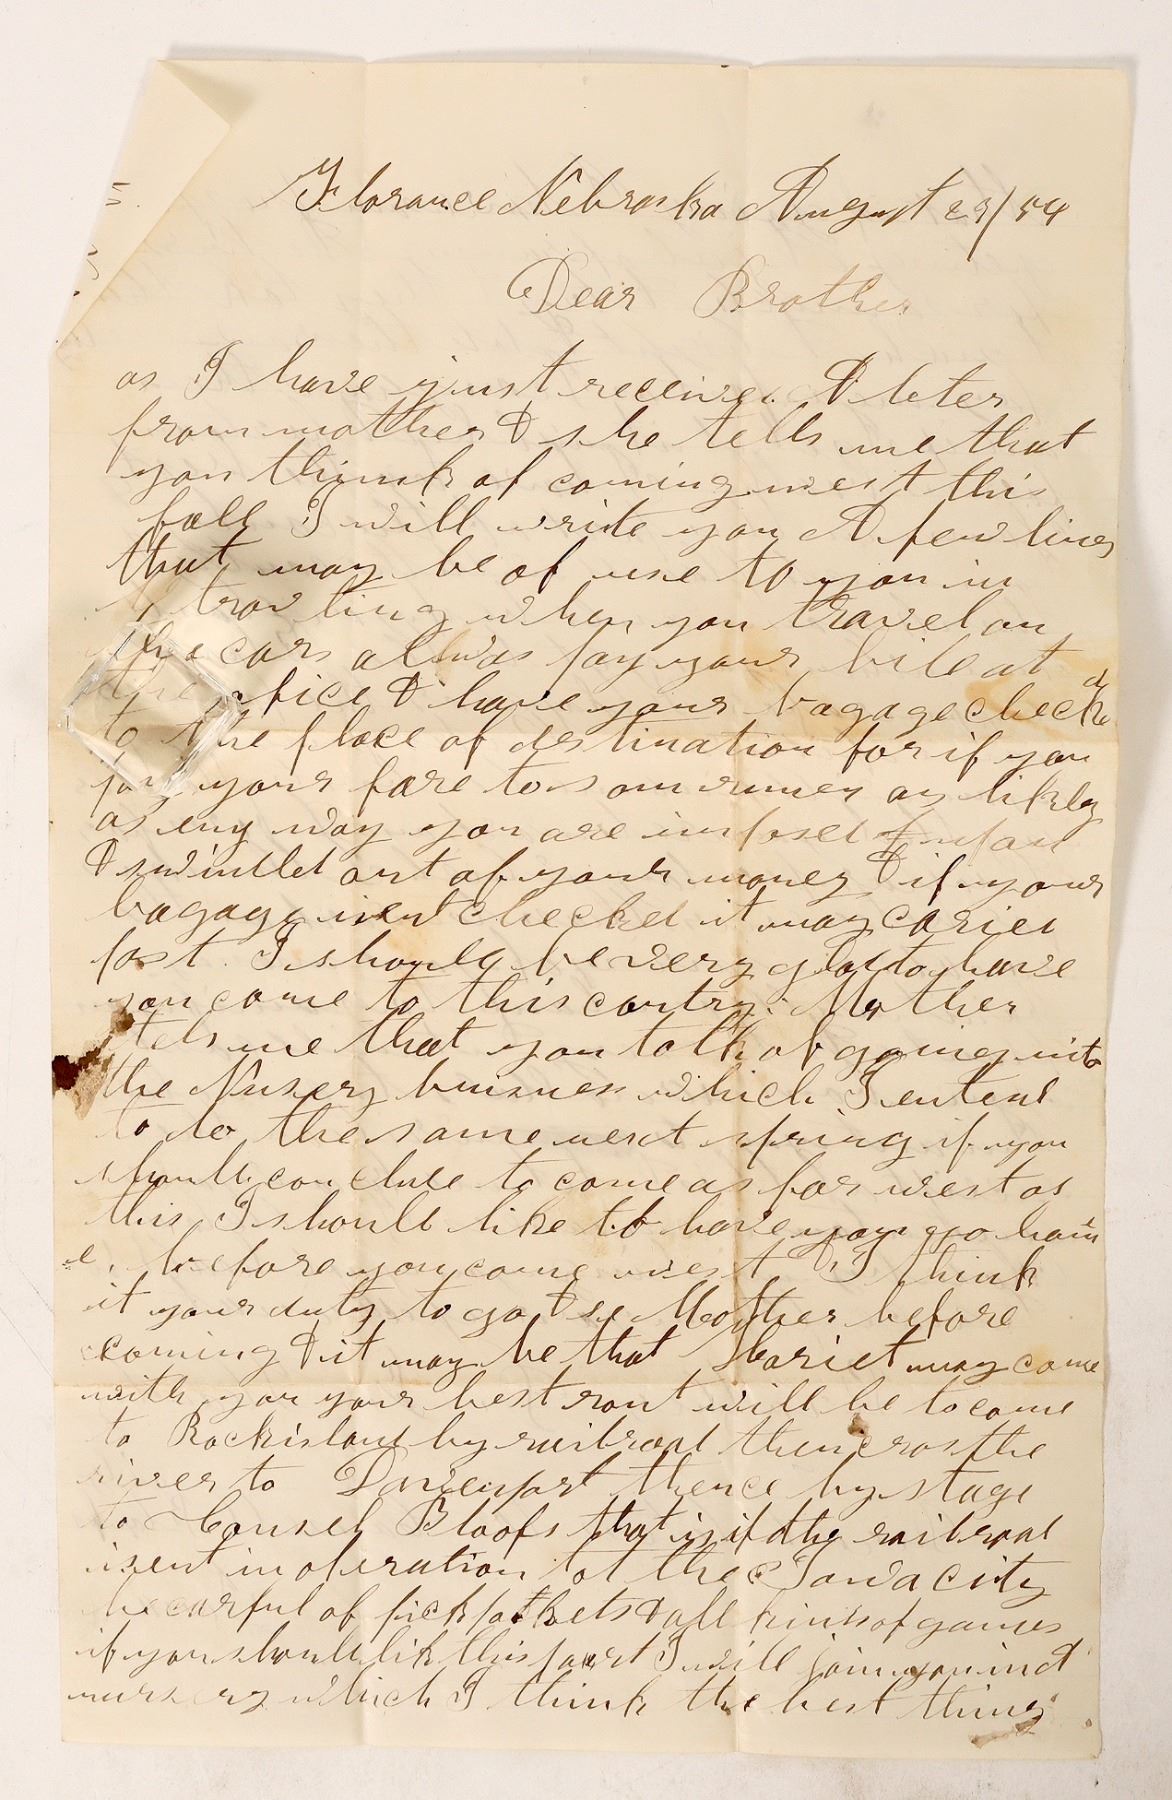 Florance Nebraska August 29/54
Dear Brother
as I have just receive A leter
from mother & she tells me that
you thimk of coming west this
fall I will write you A few lines
that may be of use to you in
travling when you travel on
the cars allwas pay your bile at
the office & have your bagage checked
to the place of destination for if you
pay your fare to som runer as likly
as eny way you are imposed upon
& swindled out of your money & if your
bagage isent checked it may caried
past. I should be very glad to have
you come to this contry. Mother
tels me that you talk of going into
the Nusery buisness which I entend
to do the same next spring if you
should conclude to come as far west as
this I should like to have you go ham
e, before you come west & I think
it your duty to go & se Mother before
coming & it may be that Hariet may come
with you your best rout will be to come
to Rockisland by railroad then cros the
river to Davenport thence by stage
to Counsel Bloofs that is if the railroad
isent in operation to the Iowa city
be carful of pick pokets & all kinds of games
if you should lik this part I will join you in A
nursery which I think the best thing